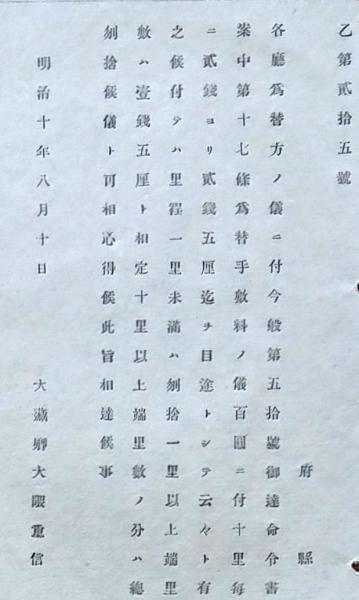 乙第貳拾五號
府縣
各廳爲替方ノ儀ニ付今般第五拾號御達命令書
案中第十七條爲替手數料ノ儀百圓ニ付十里每
ニ貳錢ヨリ貳錢五厘迄ヲ目途トシテ云々ト有
之候付テハ里程一里未滿ハ刎捨一里以上端里
數ハ壹錢五厘ト相定十里以上端里數ノ分ハ總
刎捨候儀ト可相心得候此旨相達候事
明治十年八月十日
大藏卿大隈重信